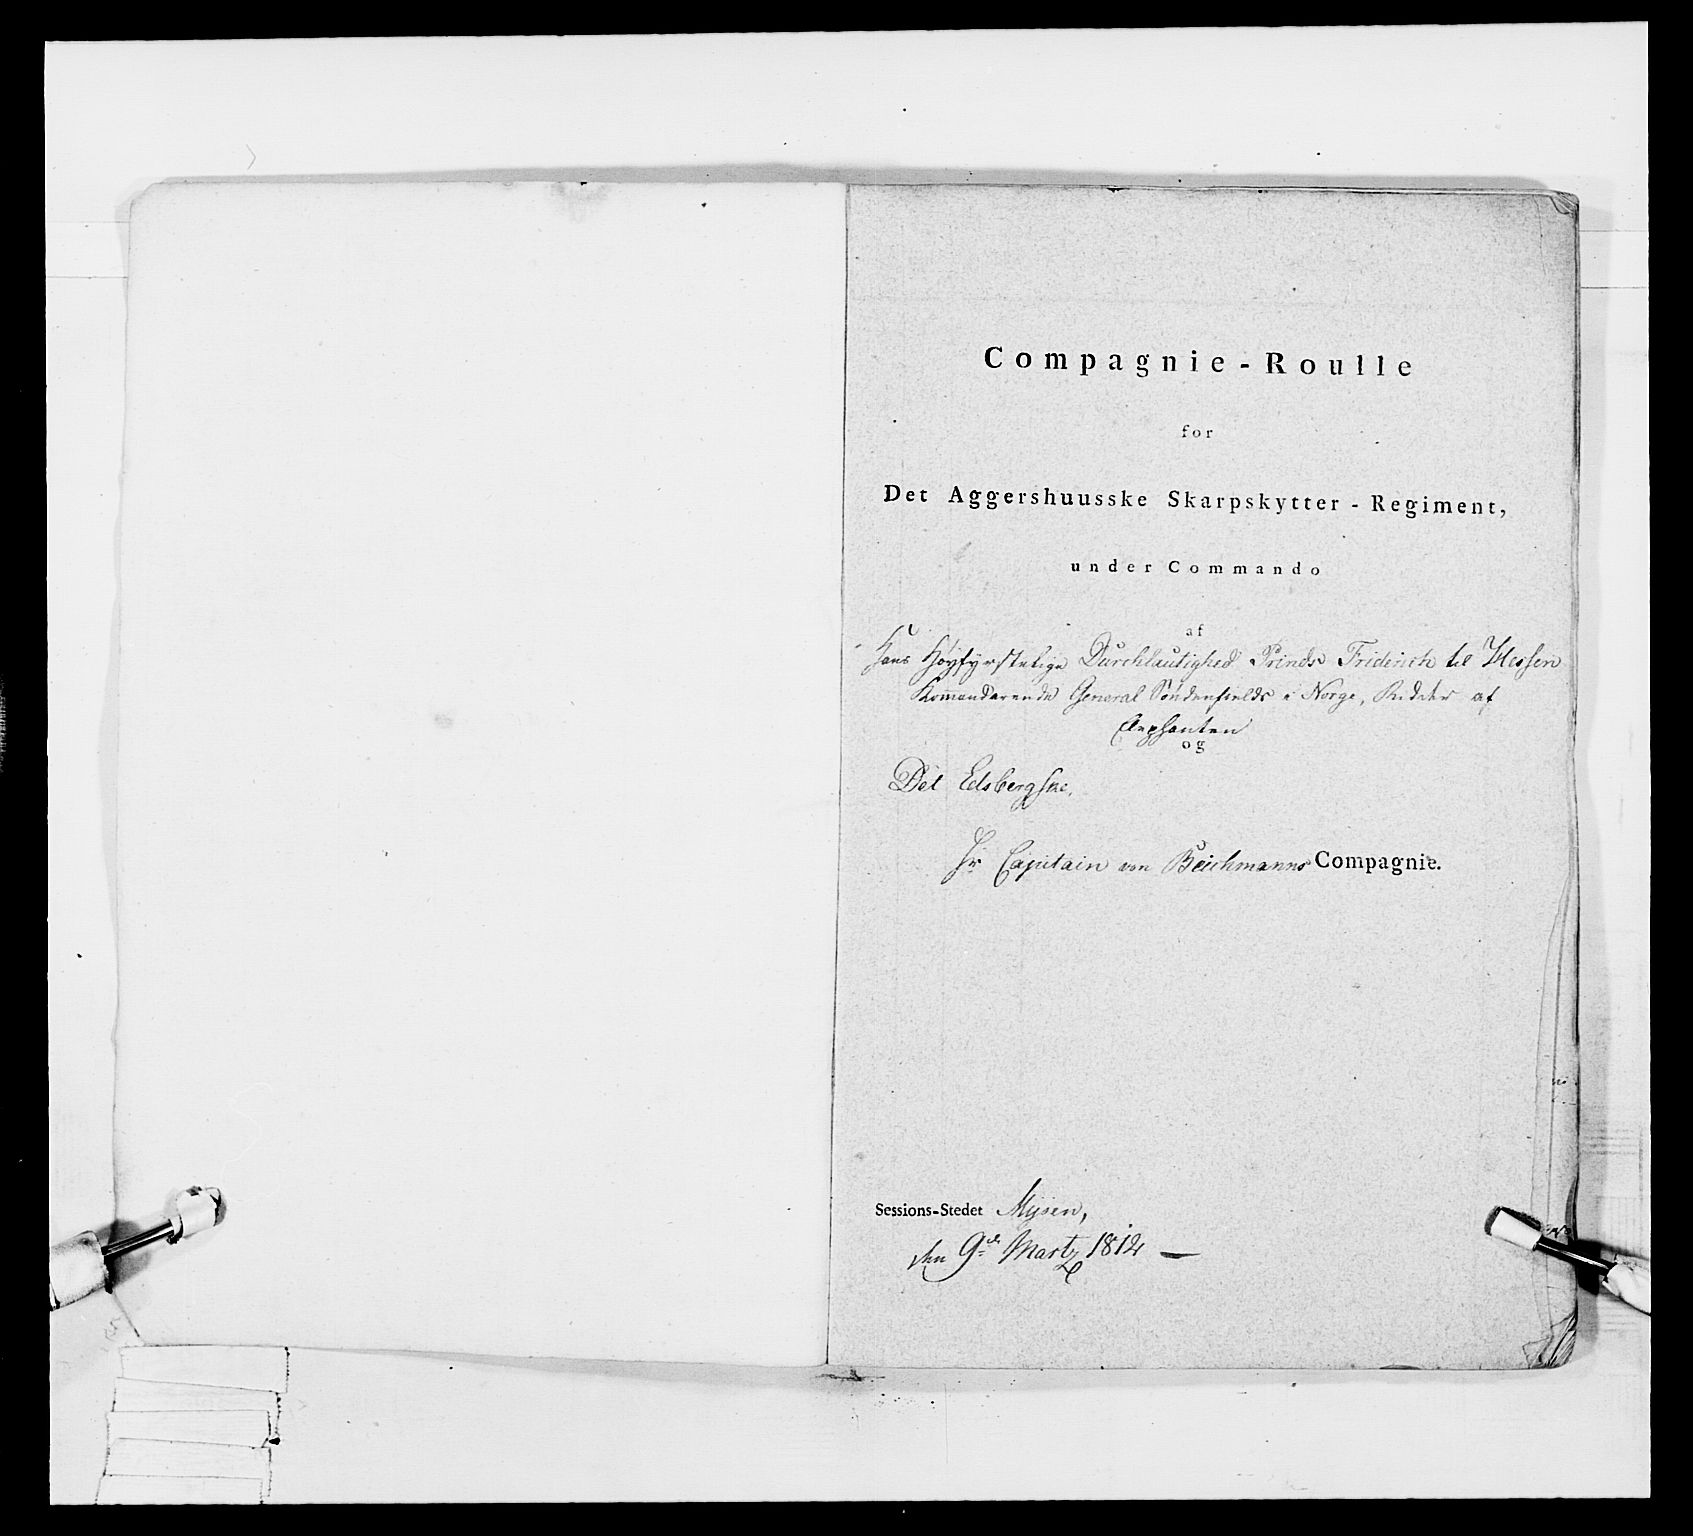 Compagnie-Roulle
for
Det Aggershuusske Skarpskytter-Regiment,
under Commando
af
Hans Høyfyrstelige Durchlautighed Prinds Friderich til Hessen
Kommanderende General Søndenfields i Norge, Ridder af
Elephanten
og
Det Eidsbergske,
Hr Capitain von Beichmanns Compagnie.
Sessions-Stedet Mysen,
den 9de Martz 1812 —